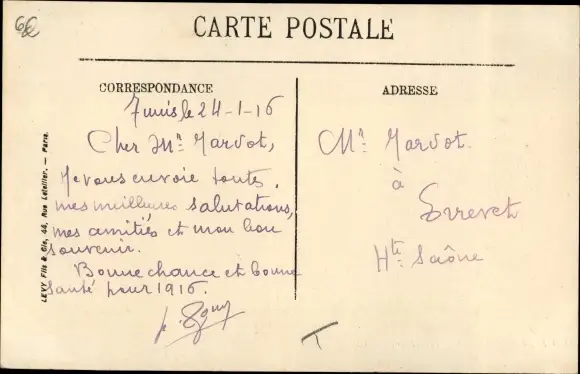 CARTE POSTALE
CORRESPONDANCE
Tunis le 24-1-16
Cher Mr Jardot,
Je vous envoie toutes
mes meilleures salutations,
mes amitiés et mon bon
souvenir.
Bonne chance et bonne
santé pour 1916.
ADRESSE
Mr Jardot
à
Errevet
Hte Saône
LEVY Fils & Cie, 44, Rue Letellier. — Paris.